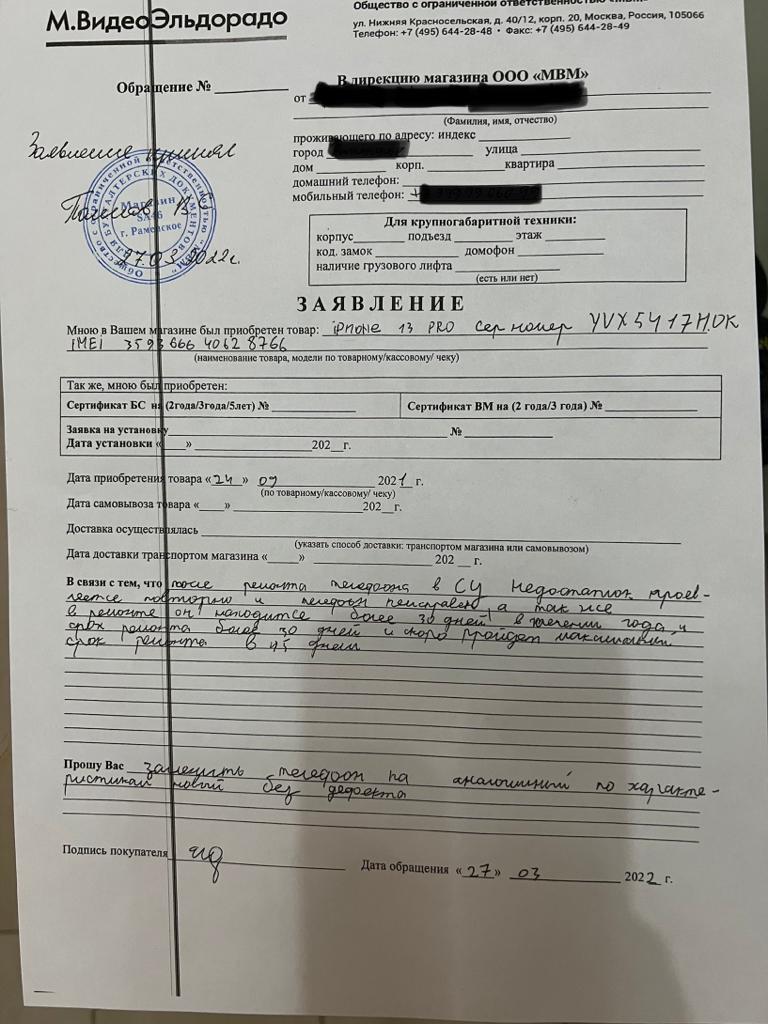 М.ВидеоЭльдорадо
Общество с ограниченной ответственностью «МВМ»
ул. Нижняя Красносельская, д. 40/12, корп. 20, Москва, Россия, 105066
Телефон: +7 (495) 644-28-48 • Факс: +7 (495) 644-28-49
Обращение №
В дирекцию магазина ООО «МВМ»
от
(Фамилия, имя, отчество)
Заявление принял
проживающего по адресу: индекс
город улица
дом корп. квартира
домашний телефон:
мобильный телефон: +
Общество с ограниченной ответственностью "МВМ"
ДЛЯ БУХГАЛТЕРСКИХ ДОКУМЕНТОВ
Магазин
SA46
г. Раменское
27.03.2022г.
Для крупногабаритной техники:
корпус подъезд этаж
код. замок домофон
наличие грузового лифта
(есть или нет)
ЗАЯВЛЕНИЕ
Мною в Вашем магазине был приобретен товар: iPhone 13 PRO сер номер YVX5417HOK
IMEI 3593 666 4062 8766
(наименование товара, модели по товарному/кассовому/ чеку)
Так же, мною был приобретен:
Сертификат БС на (2года/3года/5лет) № Сертификат ВМ на (2 года/3 года) №
Заявка на установку №
Дата установки « » 202 г.
Дата приобретения товара «24» 09 2021 г.
(по товарному/кассовому/ чеку)
Дата самовывоза товара « » 202 г.
Доставка осуществлялась
(указать способ доставки: транспортом магазина или самовывозом)
Дата доставки транспортом магазина « » 202 г.
В связи с тем, что после ремонта телефона в СЦ Недостаток прояв-
ляется повторно и телефон неисправен, а так же
в ремонте он находится более 30 дней в течении года, и
срок ремонта более 30 дней и скоро пройдет максимальн.
срок ремонта в 45 дней
Прошу Вас заменить телефон на аналогичный по характе-
ристикам новый без дефекта
Подпись покупателя
Дата обращения «27» 03 2022 г.